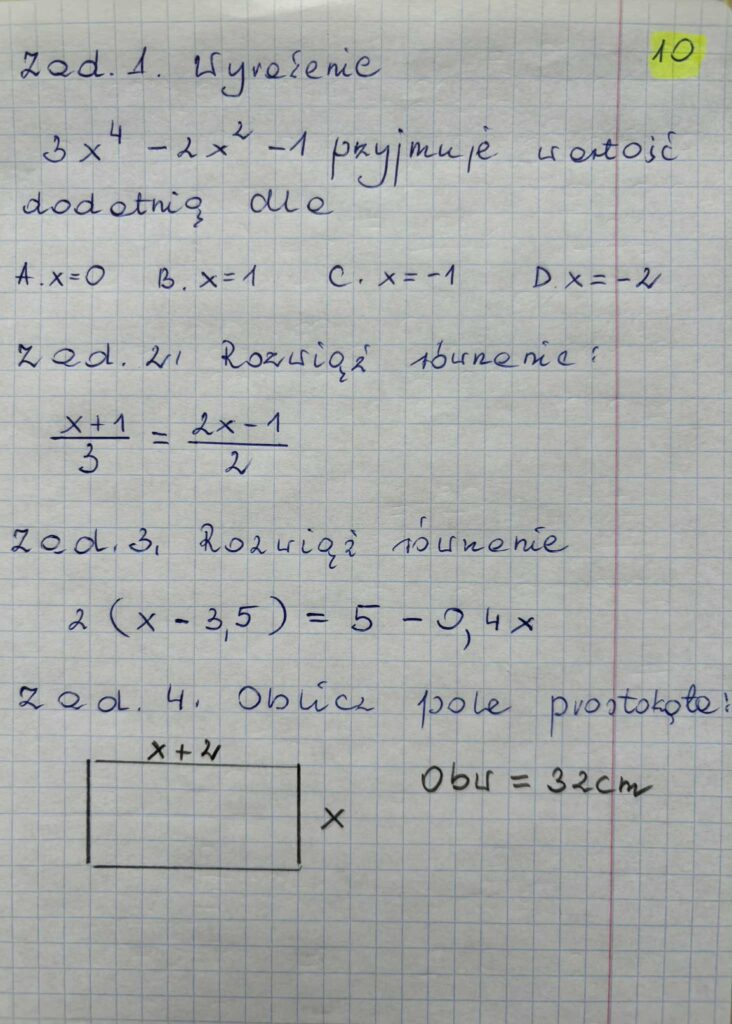 10
Zad. 1. Wyrażenie
3x⁴ - 2x² - 1 przyjmuje wartość
dodatnią dla
A. x=0 B. x=1 C. x=-1 D. x=-2
Zad. 2. Rozwiąż równanie:
(x+1)/3 = (2x-1)/2
Zad. 3. Rozwiąż równanie
2(x - 3,5) = 5 - 0,4x
Zad. 4. Oblicz pole prostokąta:
x+2
Obw = 32cm
x